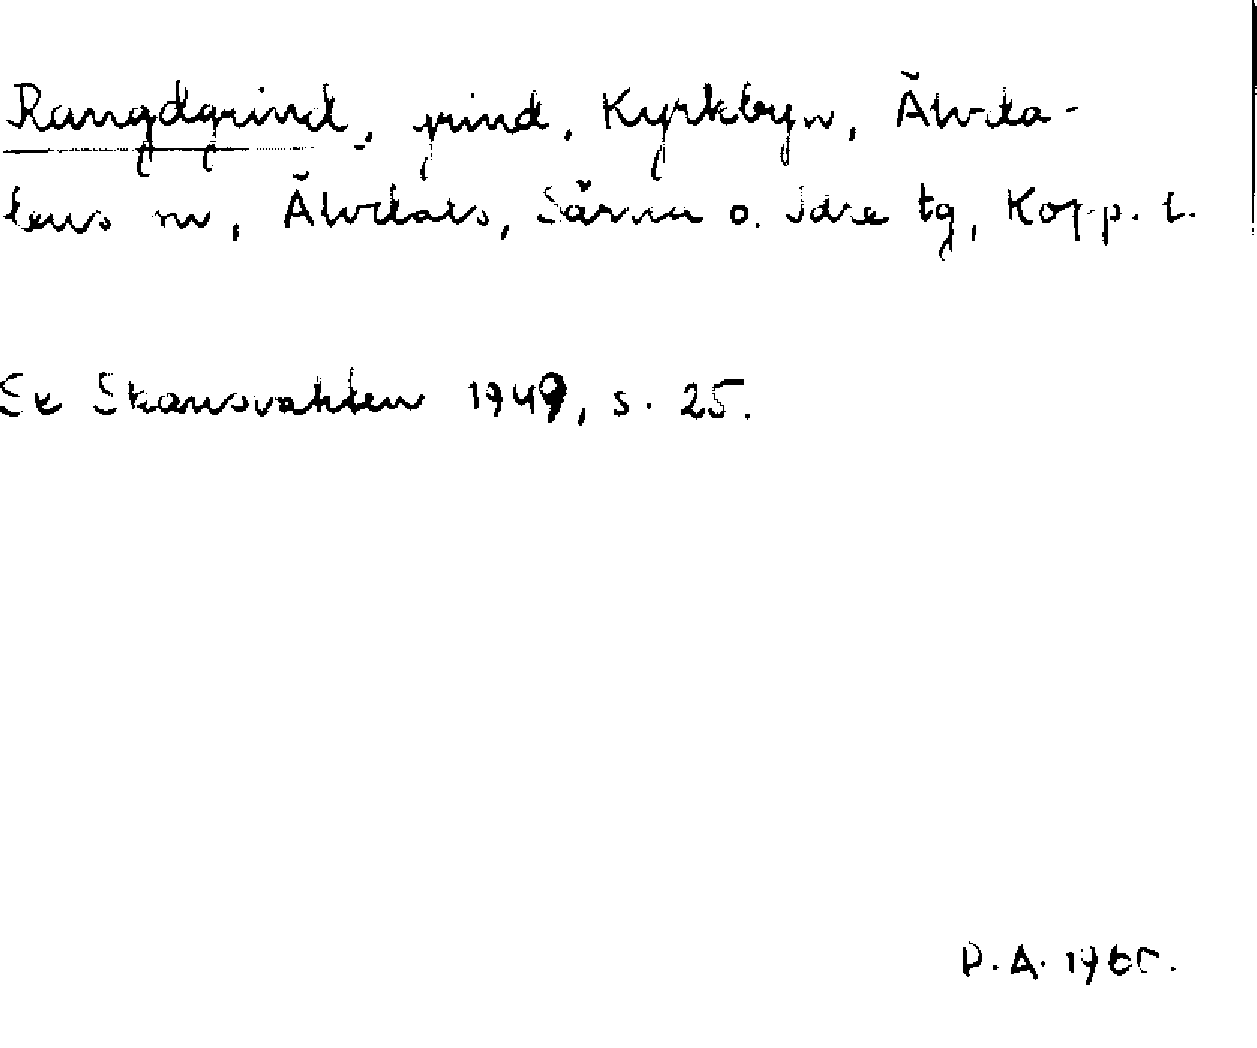 Rangdgrind, grind, Kyrkbyn, Älvda-
lens sn, Älvdals, Särna o. Idre tg, Kopp. l.
Se Skansvakten 1949, s. 25.
D.A. 1960.